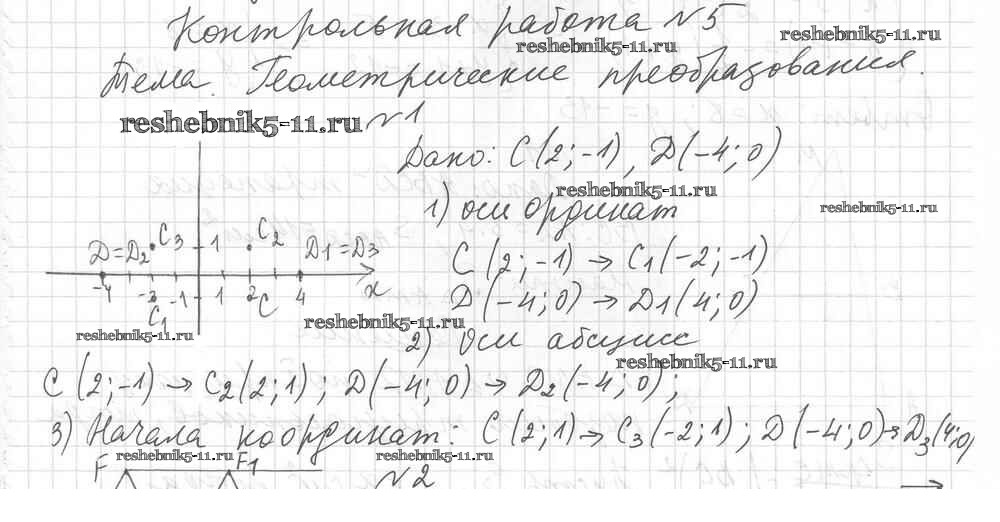 Контрольная работа №5
reshebnik5-11.ru reshebnik5-11.ru
Тема. Геометрические преобразования.
reshebnik5-11.ru №1
Дано: C(2;-1), D(-4;0)
reshebnik5-11.ru
1) оси ординат
reshebnik5-11.ru
C(2;-1) → C1(-2;-1)
D(-4;0) → D1(4;0)
D=D2 C3 1 C2 D1=D3
-4 -2 -1 1 2 C 4 x
C1
reshebnik5-11.ru reshebnik5-11.ru
2) Оси абсцисс
reshebnik5-11.ru
C(2;-1) → C2(2;1); D(-4;0) → D2(-4;0);
3) Начала координат: C(2;1) → C3(-2;1); D(-4;0) → D3(4;0)
reshebnik5-11.ru reshebnik5-11.ru
F F1 №2